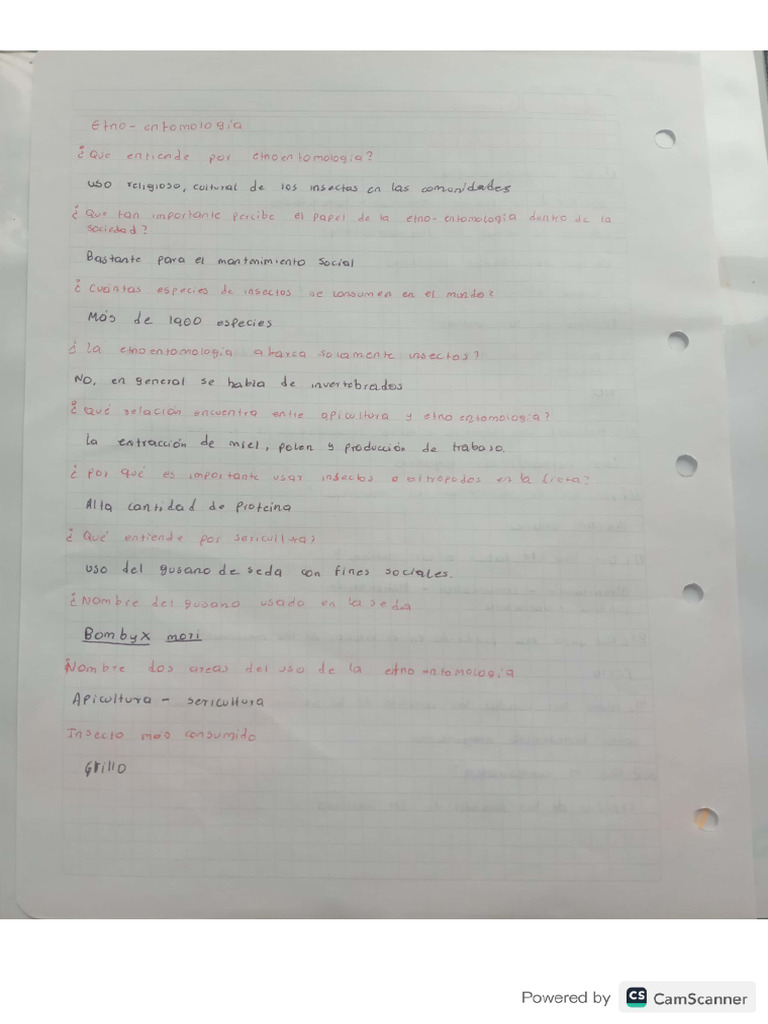 Etno-entomologia
¿Que entiende por etnoentomologia?
uso religioso, cultural de los insectos en las comunidades
¿Que tan importante percibe el papel de la etno-entomologia dentro de la
sociedad?
Bastante para el mantenimiento social
¿Cuantas especies de insectos se consumen en el mundo?
Más de 1900 especies
¿La etnoentomologia abarca solamente insectos?
NO, en general se habla de invertebrados
¿Qué relación encuentra entre apicultura y etnoentomologia?
La extracción de miel, polen y producción de trabajo.
¿Por qué es importante usar insectos o artropodos en la dieta?
Alta cantidad de proteina
¿Qué entiende por
uso del gusano de seda con fines sociales.
¿Nombre del gusano usado en la seda
Bombyx mori
Nombre dos areas del uso de la etno entomologia
Apicultura - sericultura
Insecto más consumido
Grillo
Powered by CS CamScanner